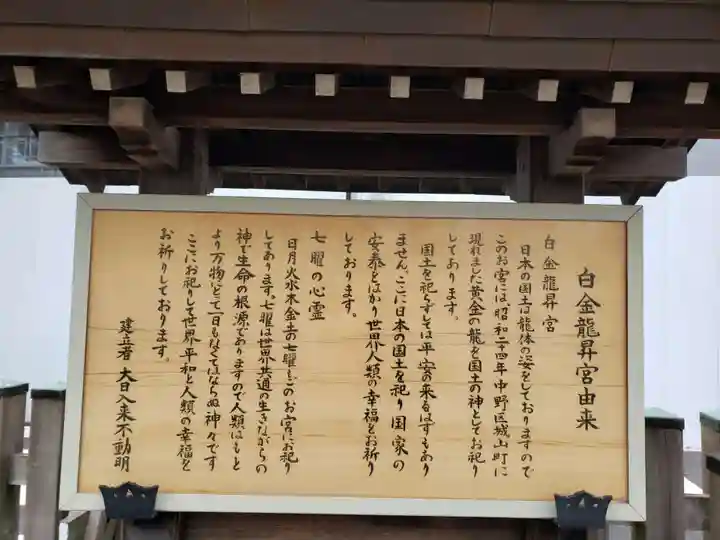 白金龍昇宮由来
白金龍昇宮
日本の国土は龍体の姿をしておりますので
このお宮には、昭和二十四年中野区城山町に
現れました黄金の龍を国土の神としてお祀り
してあります。
国土を祀らずそは平安の来るはずもあり
ません。ここに日本の国土を祀り国家の
安泰とはかり世界人類の幸福をお祈り
しております。
七曜の心霊
日月火水木金土の七曜もこのお宮にお祀り
してあります。七曜は世界共通の生きながらの
神で生命の根源でありますので人類はもと
より万物にとて一日もなくてはならぬ神々です
ここにお祀りして世界平和と人類の幸福を
お祈りしております。
建立者 大日入来不動明